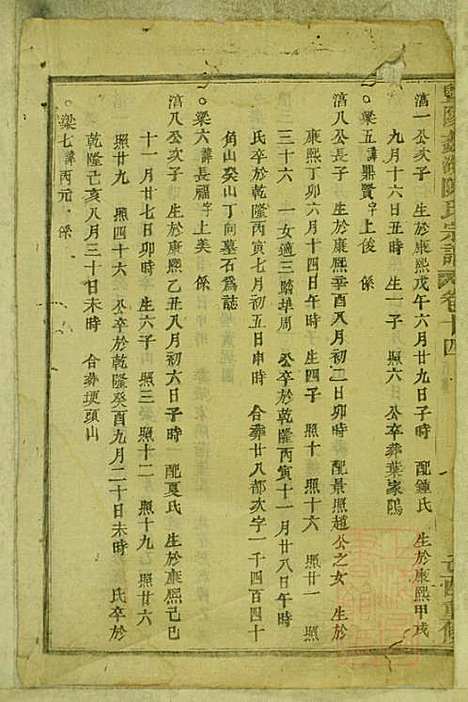 暨陽鑑湖陳氏宗譜 卷十四
己酉重修
滈一公次子 生於康熙戊午六月廿九日子時 配鍾氏 生於康熙甲戌
九月十六日丑時 生一子 照六 公卒葬葉家隖
○梁五諱鼎賢字上俊 係
滈八公長子 生於康熙辛酉八月初二日卯時 配景照趙公之女 生於
康熙丁卯六月十四日午時 生四子 照十 照十六 照廿一 照
三十六 一女適三踏埠周 公卒於乾隆丙寅十一月廿八日午時
氏卒於乾隆丙寅七月初五日申時 合葬廿八都次字一千四百四十
角山癸山丁向墓石爲誌
○梁六諱長福字上美 係
滈八公次子 生於康熙乙丑八月初六日子時 配夏氏 生於康熙己巳
十一月廿七日卯時 生六子 照三 照十二 照十九 照廿六
照廿九 照四十六 公卒於乾隆癸酉九月二十日未時 氏卒於
乾隆己亥八月三十日未時 合葬埂頭山
○梁七諱丙元 係